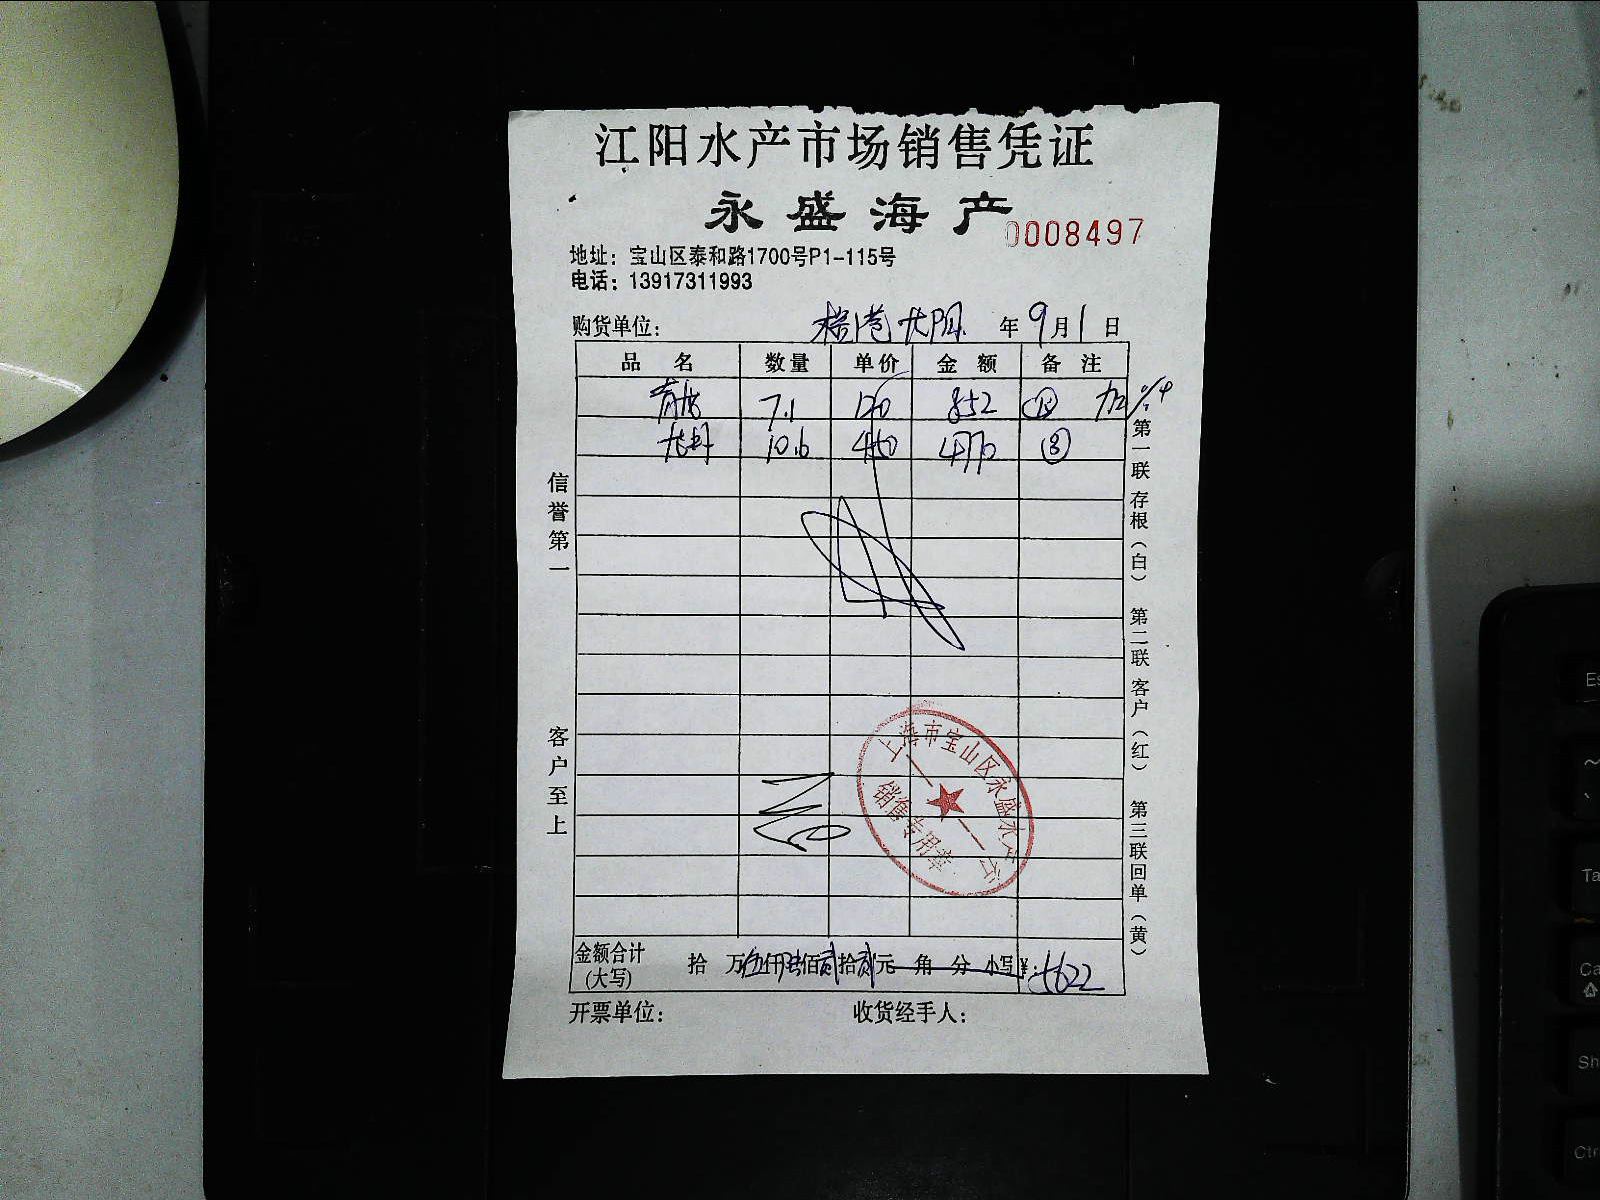 江阳水产市场销售凭证
永盛海产
0008497
地址：宝山区泰和路1700号P1-115号
电话：13917311993
购货单位：
年9月1日
品名 数量 单价 金额 备注
7.1 120 852 加
10.6 450 4770 ③
信誉第一
客户至上
第一联 存根（白） 第二联 客户（红） 第三联 回单（黄）
上海市宝山区永盛水产行
销售专用章
金额合计 拾万伍仟陆佰贰拾贰元角分 小写¥：5622
（大写）
开票单位： 收货经手人：
Es
Ta
Ca
Sh
Ctr